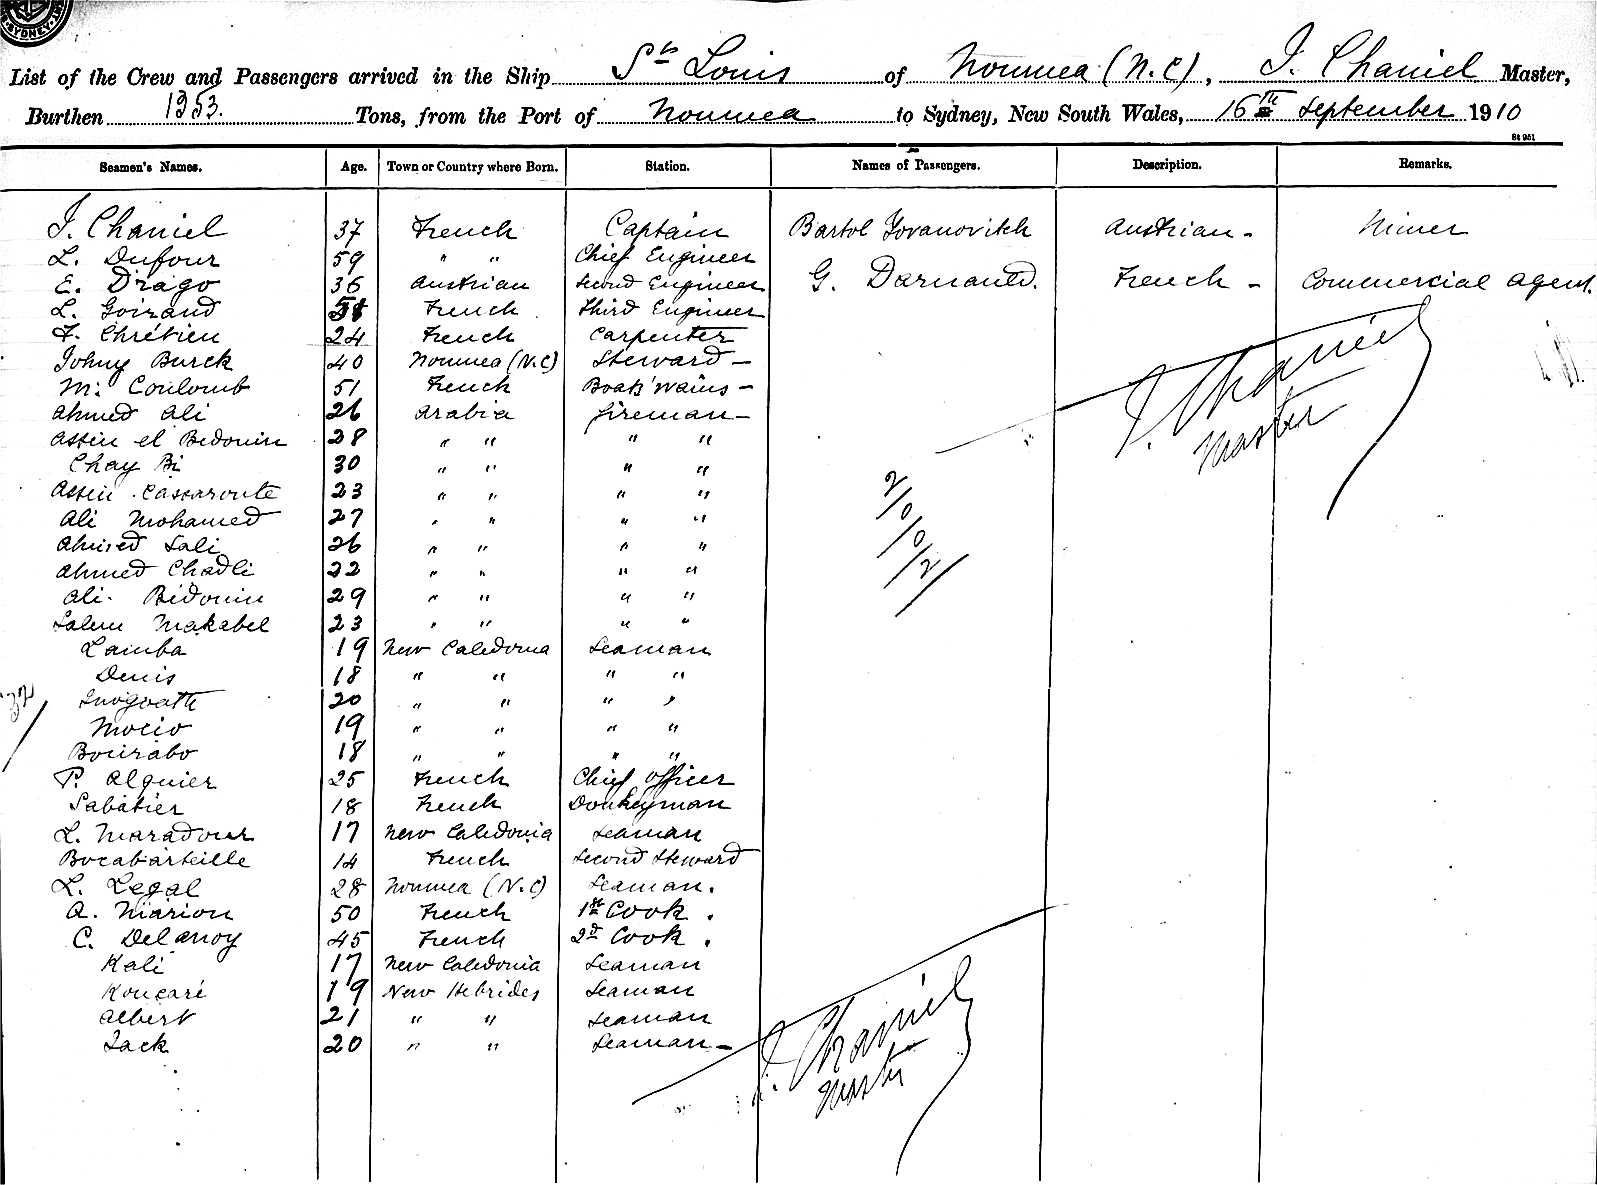 SYDNEY
List of the Crew and Passengers arrived in the Ship St Louis of Noumea (N.C), J. Chaniel Master,
Burthen 1353. Tons, from the Port of Noumea to Sydney, New South Wales, 16th September 1910
St 951
Seamen's Names. Age. Town or Country where Born. Station. Names of Passengers. Description. Remarks.
J. Chaniel 37 French Captain Bartol Yovanovitch Austrian - Miner
L. Dufour 59 " " Chief Engineer
E. Drago 36 Austrian Second Engineer G. Darnaud. French - Commercial Agent.
L. Goirand French Third Engineer
F. Chrétien 24 French Carpenter
Johny Burck 40 Noumea (N.C) Steward -
M. Coulomb 51 French Boats'wains -
Ahmed Ali 26 Arabia fireman -
Assin el Bedouin 28 " " " "
Chay Bi 30 " " " "
Assin Cassaroute 23 " " " "
Ali Mohamed 27 " " " "
Ahmed Sali 26 " " " "
Ahmed Chadli 22 " " " "
Ali Bédouin 29 " " " "
Salem Makabel 23 " " " "
Lamba 19 New Caledonia Seaman
Denis 18 " " " "
20 " " " "
Mocio 19 " " " "
Bourabo 18 " " " "
P. Alquier 25 French Chief Officer
Sabatier 18 French Donkeyman
L. Maradour 17 New Caledonia Seaman
Bocabarteille 14 French Second Steward
L. Legal 28 Noumea (N.C) Seaman.
A. Marion 50 French 1st Cook.
C. Delanoy 45 French 2d Cook.
Kali 17 New Caledonia Seaman
Koucaré 19 New Hebrides Seaman
Albert 21 " " Seaman
Jack 20 " " Seaman -
J. Chaniel
Master
2/0/0/2/
32/
J. Chaniel
Master